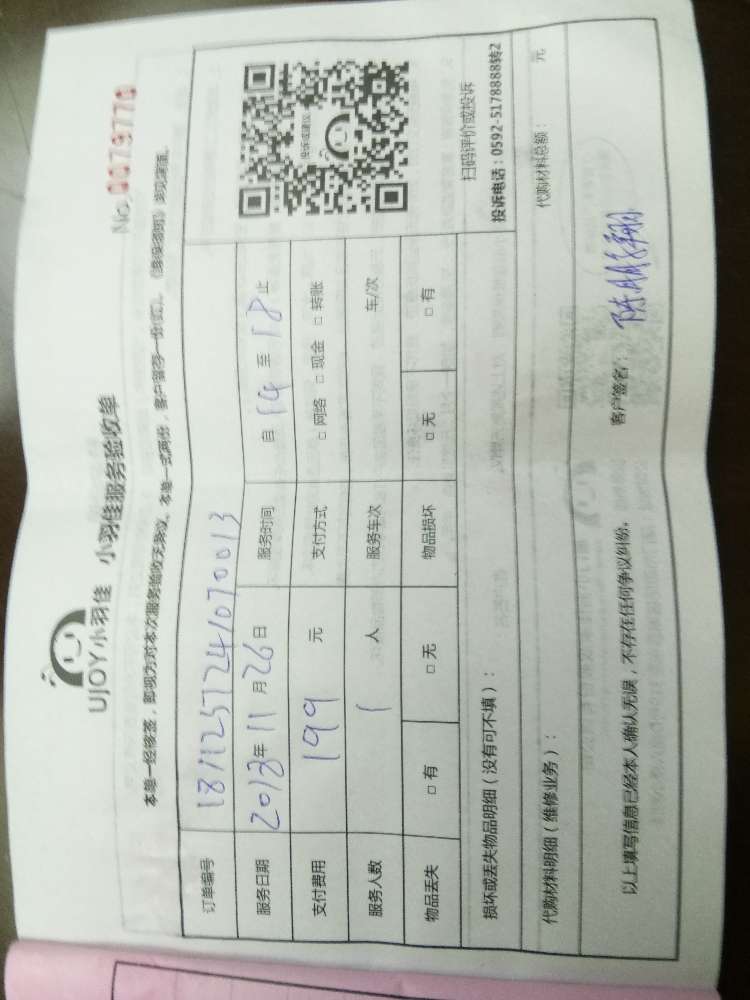 No. 0079770
UJOY小羽佳 小羽佳服务验收单
本单一经修签，即视为对本次服务验收无异议。本单一式两份，客户留存一份
订单编号 1811257241070013
服务日期 2018年 11月 26日 服务时间 自 14 至 18 止
支付费用 199 元 支付方式 □ 网络 □ 现金 □ 转账
服务人数 1 人 服务车次 车/次
物品丢失 □ 有 □ 无 物品损坏 □ 无 □ 有
投诉或建议
扫码评价或投诉
投诉电话：0592-5178888转2
损坏或丢失物品明细（没有可不填）：
代购材料明细（维修业务）： 代购材料总额： 元
以上填写信息已经本人确认无误，不存在任何争议纠纷。 客户签名：